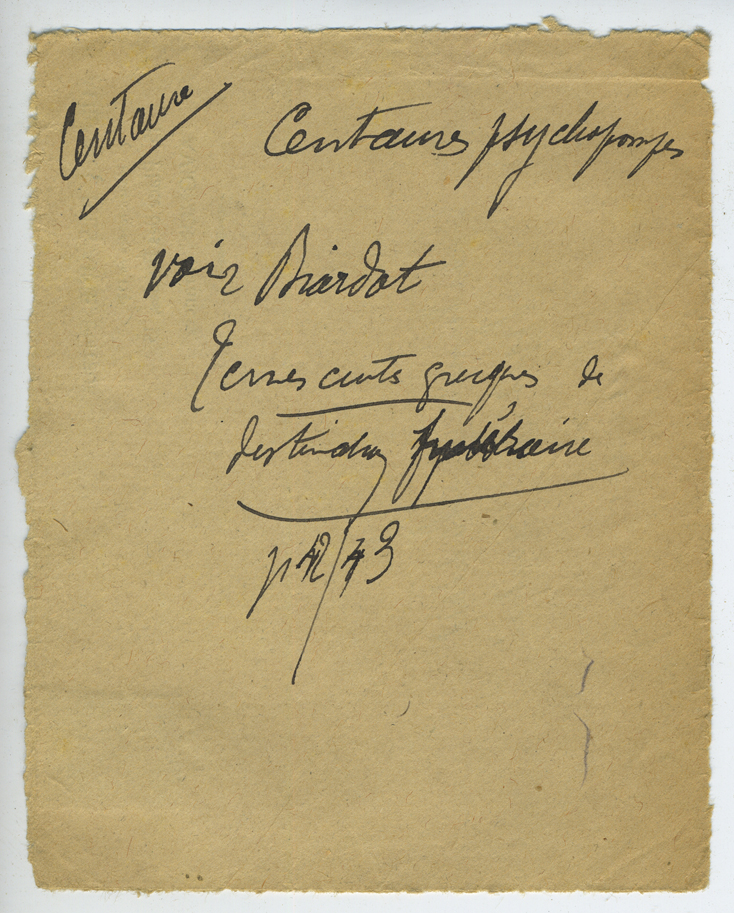 Centaure
Centaures psychopompes
voir Biardot
Terres cuites grecques de
destination funéraire
p 42/43